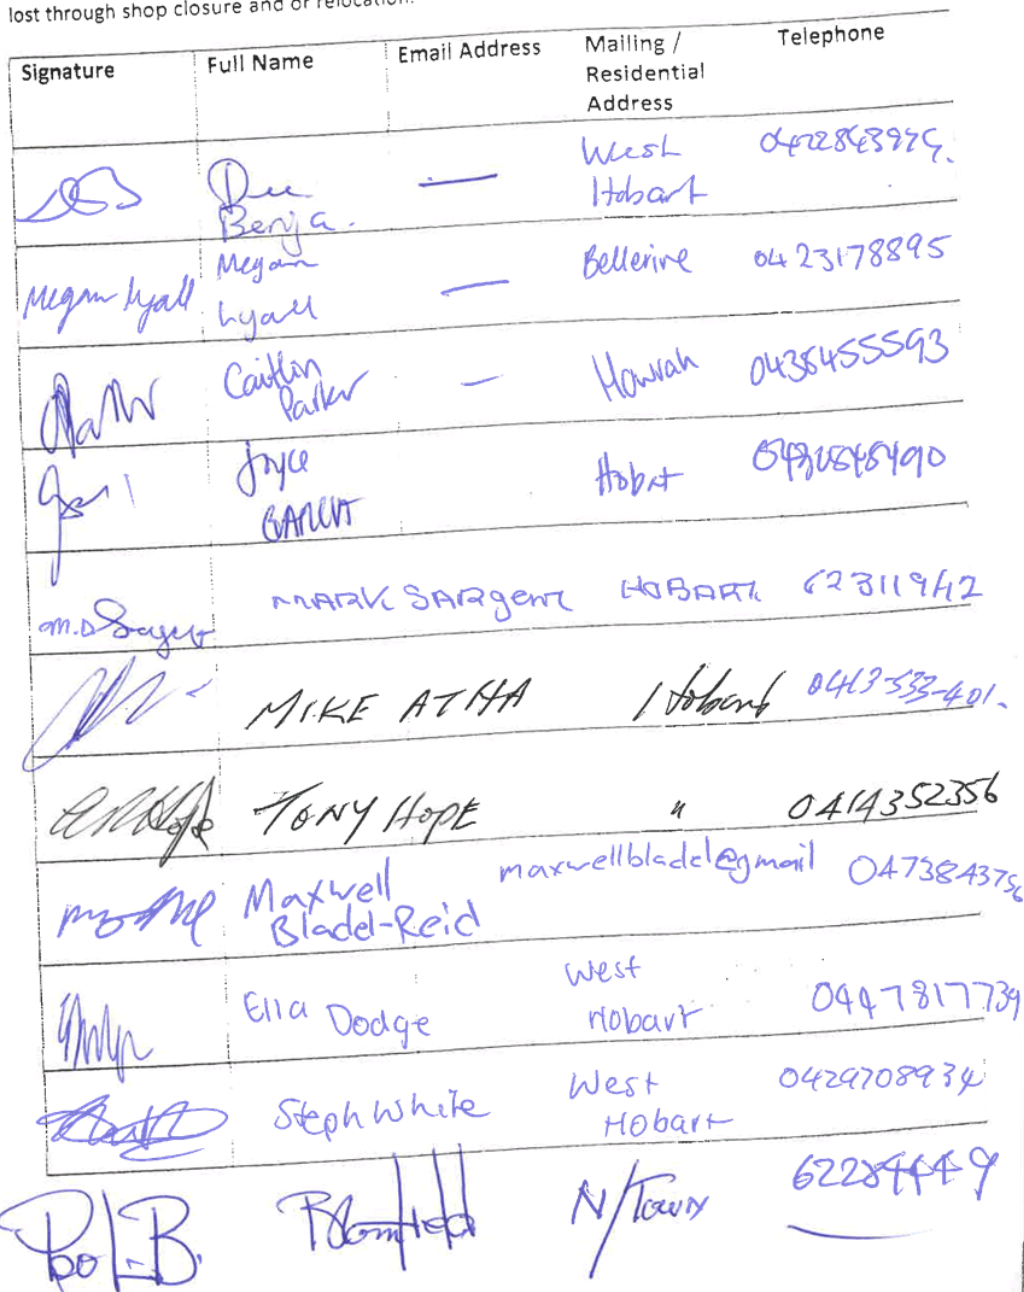 lost through shop closure and or relocation.
Signature Full Name Email Address Mailing / Residential Address Telephone
Dee Benja. — West Hobart
Megan Lyall Megan Lyall — Bellerive 0423178895
Caitlin Parker — Howrah 0438455593
Joyce Hobart
M.D Sargent MARK SARgenT HOBART 62311942
MIKE ATHA Hobart 0413-533-401.
TONY HOPE " 0414352356
Maxwell Bladel-Reid maxwellbladel@gmail 0473843756
Ella Dodge West Hobart 0447817739
Steph White West Hobart 0429708934
Blomfield N/Town 62284449